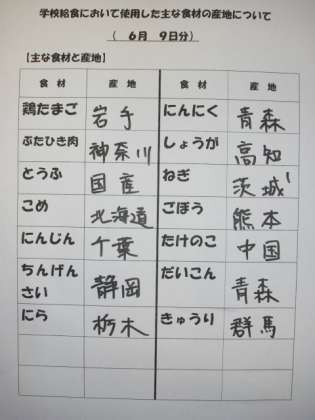 学校給食において使用した主な食材の産地について
( 6月 9日分)
【主な食材と産地】
食 材 産 地 食 材 産 地
鶏たまご 岩手 にんにく 青森
ぶたひき肉 神奈川 しょうが 高知
とうふ 国産 ねぎ 茨城
こめ 北海道 ごぼう 熊本
にんじん 千葉 たけのこ 中国
ちんげん
さい 静岡 だいこん 青森
にら 栃木 きゅうり 群馬